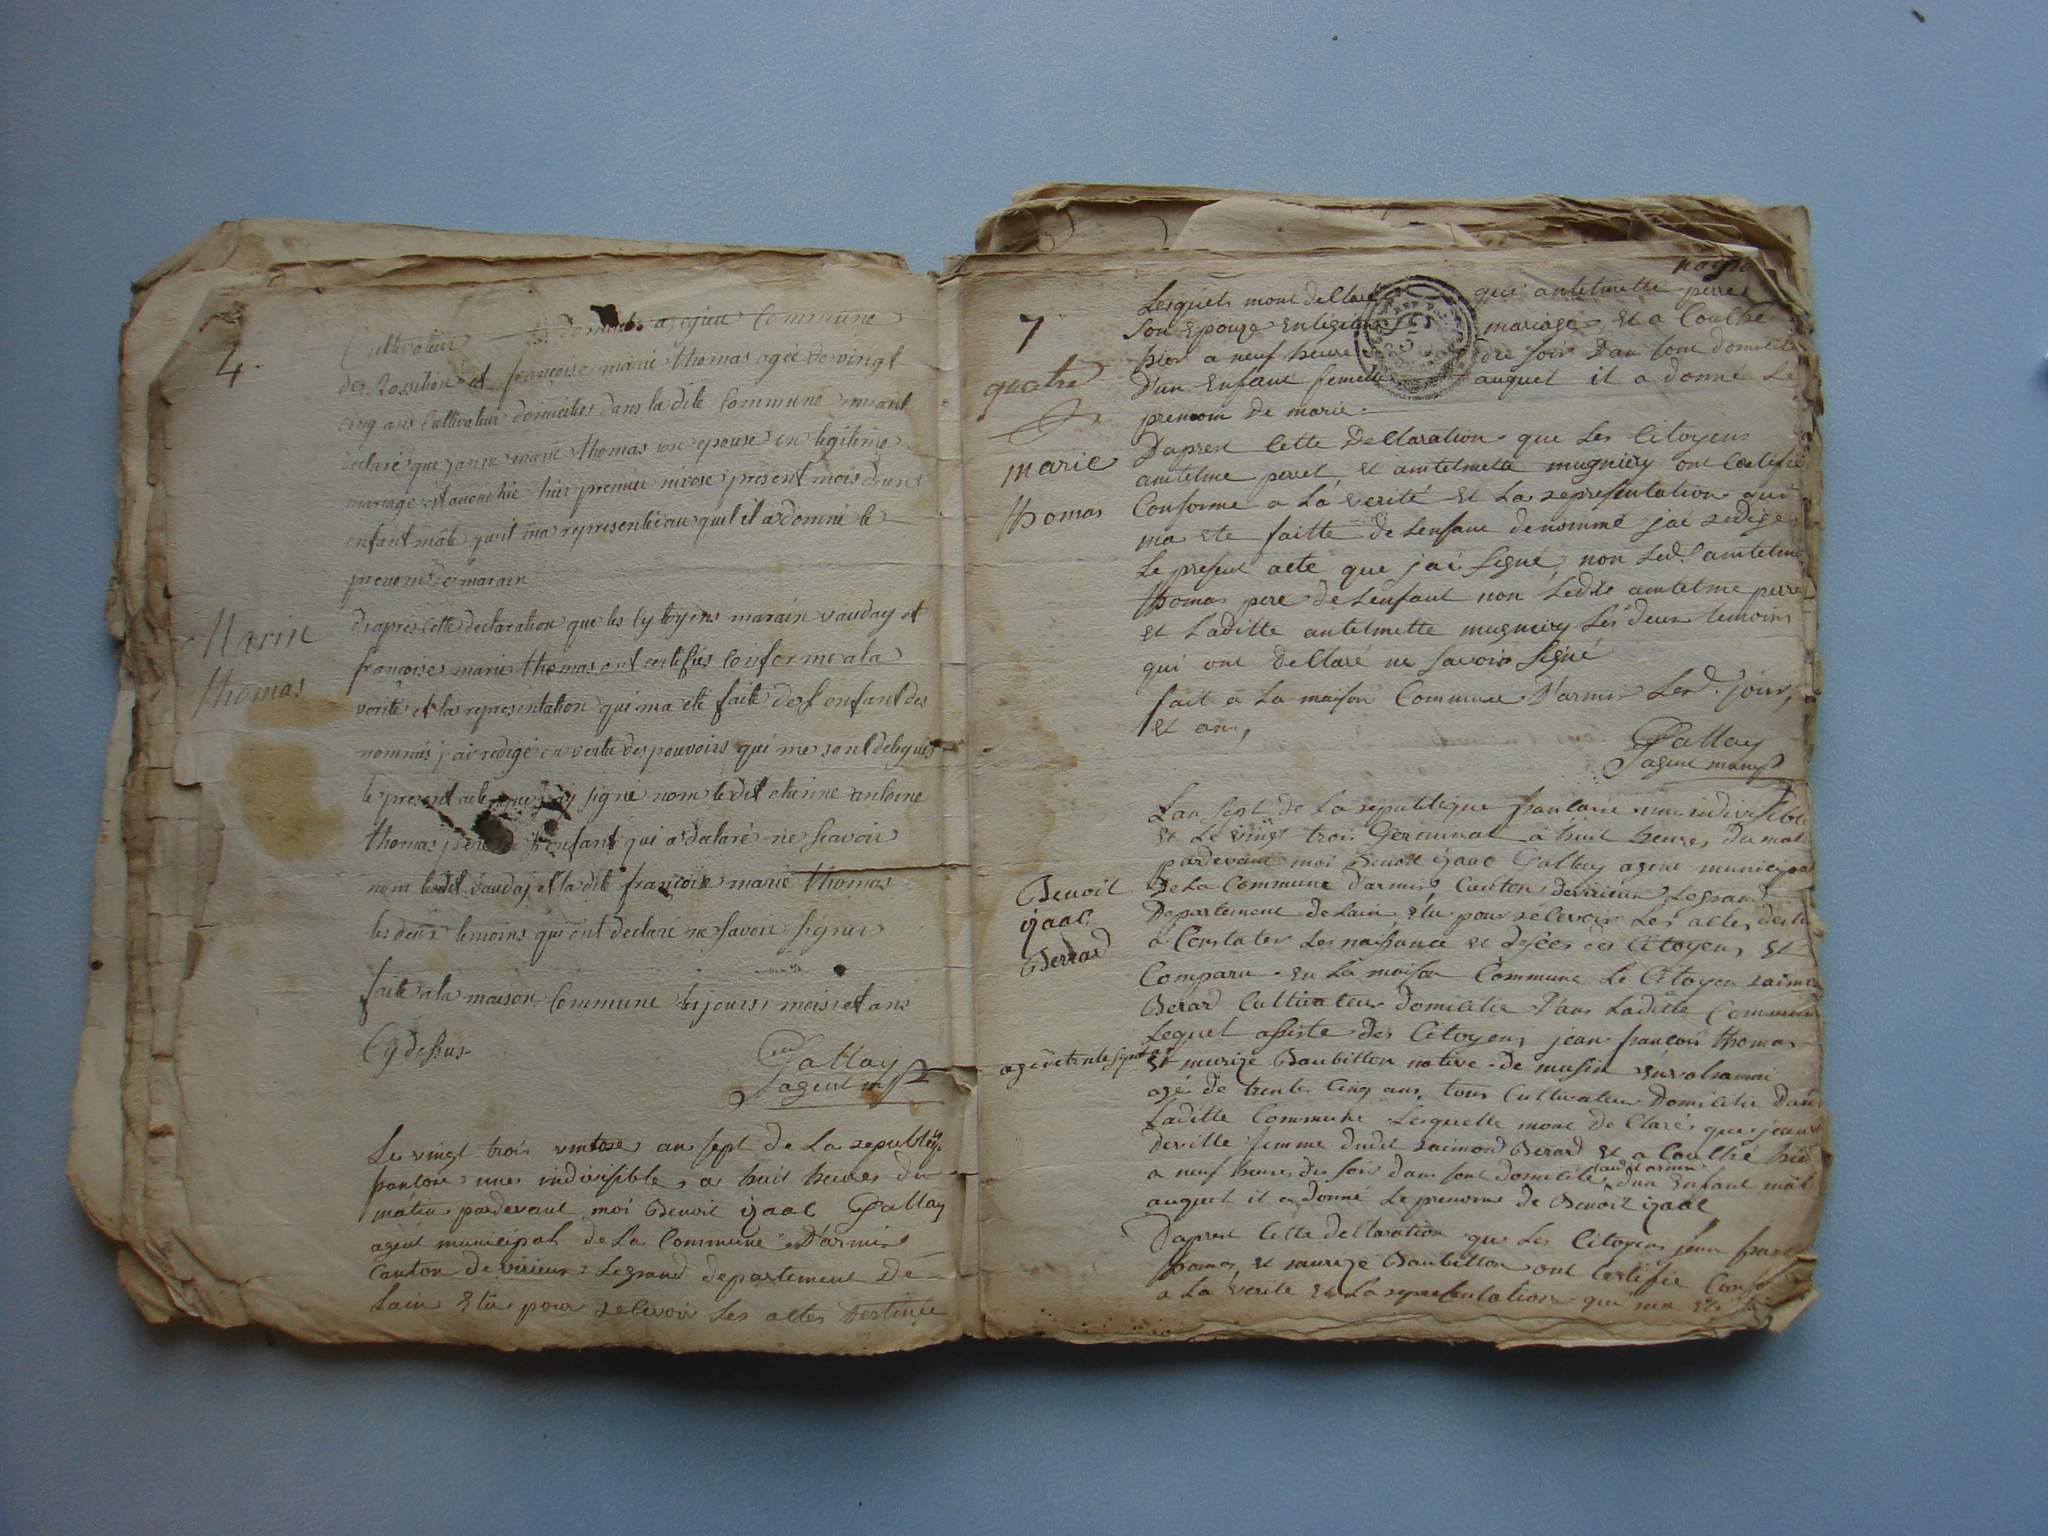 4.
Cultivateur domicilie a egieu Commune
de Rossilion et françoise marie thomas agée de vingt
cinq ans Cultivateur domicilies dans la dite Commune mont
declaré que janne marie thomas son epouse en legitime
mariage est accouchée hier premier nivose present mois d'un
enfant mâle qu'il ma representé au quel il a donné le
prenom de marain
Marin
thomas
d'après cette declaration que les Cytoyens marain vauday et
françoise marie thomas ont certifiés conforme a la
verité et la representation qui ma été faite de l'enfant de
nommés j'ai redigé en vertu des pouvoirs qui me sont delegués
le present acte que j'ay signé nom le dit etienne antoine
thomas pere de l'enfant qui a declaré ne scavoir
nom le dit vauday et la dite françoise marie thomas
les deux temoins qui ont declaré ne savoir signer
faite a la maison Commune les jours, mois et ans
Cy dessus
Gallay
agent m
Le vingt trois vintose an sept de La republiq
francoise une indivisible, a huit heures du
matin pardevant moi Benoit izaac Gallay
agent municipal de La Commune D'armix
Canton de virieux Legrand departement De
Lain Elu pour recevoir Les actes Destinée
7
quatre
marie
thomas
Lesquels mont declaré que antelmette perret
Son Epouze En legitime mariage, Et a Couché
hier a neuf heure du soir Dans son domicile
D'un Enfant femelle auquel il a donné Le
prenom de marie.
Dapres Cette Declaration que Les Citoyens
antelme perret Et antelmette mugniery ont Certifié
Conforme a La verité Et La representation qui
ma Ete faitte de Lenfant denommé jai redigé
Le present acte que j'ai signé, non Led. antelme
thomas pere de Lenfant non Ledit antelme perret
Et Laditte antelmette mugniery Les deux temoins
qui ont declaré ne savoir signé
fait a La maison Commune D'armix Led. jour,
Et an,
Gallay
agent
Benoit
izaac
Berrard
Lan Sept de La republique francaise une indivisible
Et Le vingt trois Germinal a huit heures du mat
pardevant moi Benoit izaac Gallay agent municipal
De La Commune d'armix, Canton de virieux Legrand
Departement de Lain, Elu pour recevoir Les actes destin
a Constater Les naissance et deces des Citoyens, Et
Comparu En La maison Commune Le Citoyen raimon
Berard Cultivateur domicilie Dans Laditte Commune
Lequel assiste des Citoyens jean françois thomas
agé de trente sept
Et murize Baubillon native de musin
agé de trente Cinq ans, tous Cultivateur Domicilie dans
Laditte Commune Lesquelle mont de Claré que jeanne
deville femme dudit raimond Berard Et a Couché hier
a neuf heures du soir dans sont domicile, audit armix d'un Enfant mal
auquel il a donné Le prenom de Benoit izaac
Dapres Cette declaration que Les Citoyens jean fran
thomas Et murize Baubillon ont Certifié Confo
a La verite Et La representation qui ma Ete